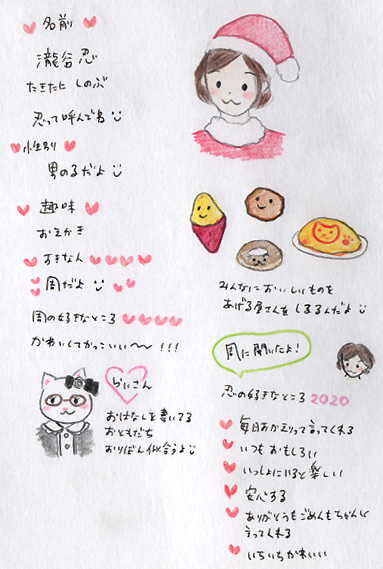 名前
瀧谷 忍
たきたに しのぶ
忍って呼んでね
性別
男の子だよ
趣味
おえかき
すきな人
周だよ
周の好きなところ
かわいくてかっこいい〜〜!!!
らいさん
おはなしを書いてる
おともだち
おりぼん似合うよ
みんなにおいしいものを
あげる屋さんをしてるんだよ
周に聞いたよ!
忍の好きなところ 2020
毎日おかえりって言ってくれる
いつもおもしろい
いっしょにいると楽しい
安心する
ありがとうもごめんもちゃんと
言ってくれる
いちいちかわいい